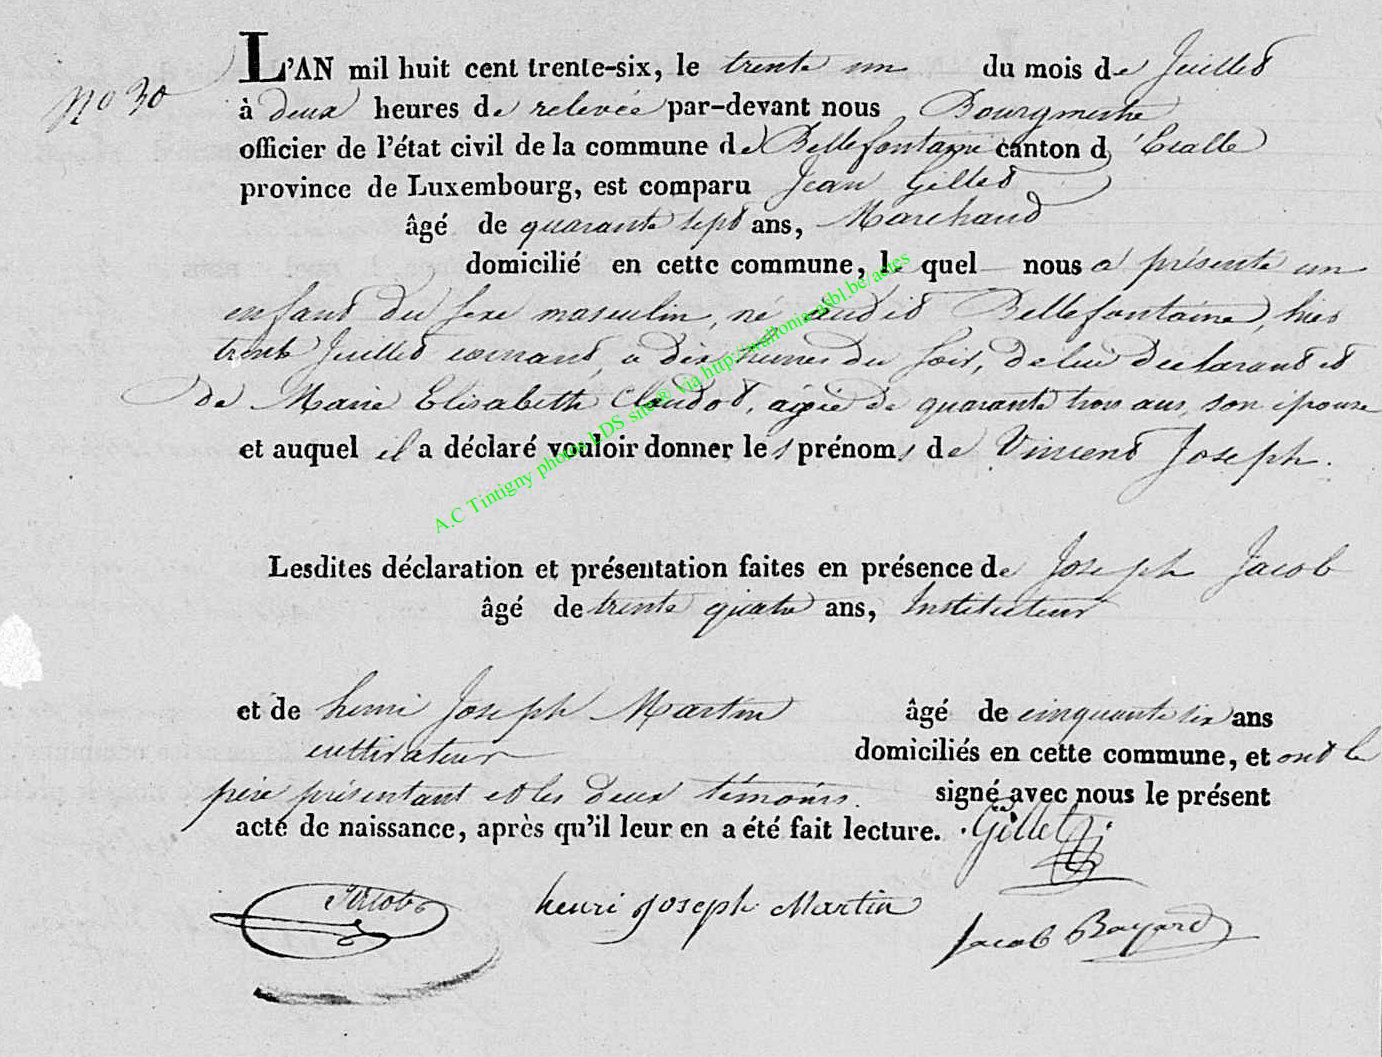 No 30
L'AN mil huit cent trente-six, le trente un du mois de Juillet
à deux heures de relevée par-devant nous Bourgmestre
officier de l'état civil de la commune de Bellefontaine canton d'Etalle
province de Luxembourg, est comparu Jean Gillet
âgé de quarante sept ans, Marchand
domicilié en cette commune, le quel nous a présenté un
enfant du sexe masculin, né audit Bellefontaine, hier
trente Juillet courant, a dix heures du soir, de lui declarant et
de Marie Elisabeth Claudot, agée de quarante trois ans, son épouse
et auquel il a déclaré vouloir donner les prénoms de Vincent Joseph.
Lesdites déclaration et présentation faites en présence de Joseph Jacob
âgé de trente quatre ans, Instituteur
et de henri Joseph Martin âgé de cinquante six ans
cultivateur domiciliés en cette commune, et ont le
père présentant et les deux témoins. signé avec nous le présent
acte de naissance, après qu'il leur en a été fait lecture. Gillet
Jacob henri Joseph Martin Jacob Bayard
A.C Tintigny photo LDS site® via http://wallonia-asbl.be/actes